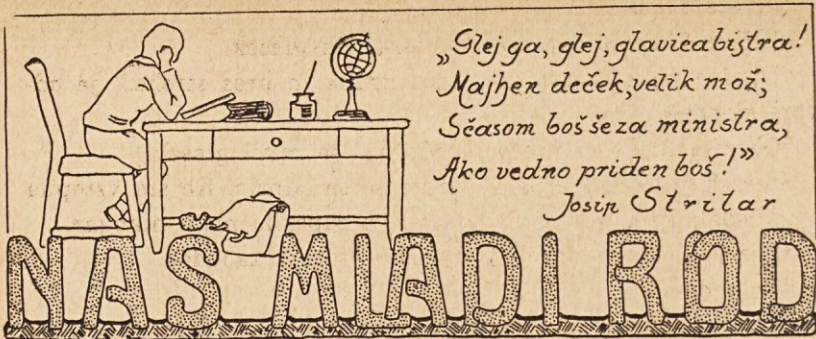 „Glej ga, glej, glavica bistra!
Majhen deček, velik mož;
Sčasom boš še za ministra,
Ako vedno priden boš!”
Josip Stritar
NAS MLADI ROD